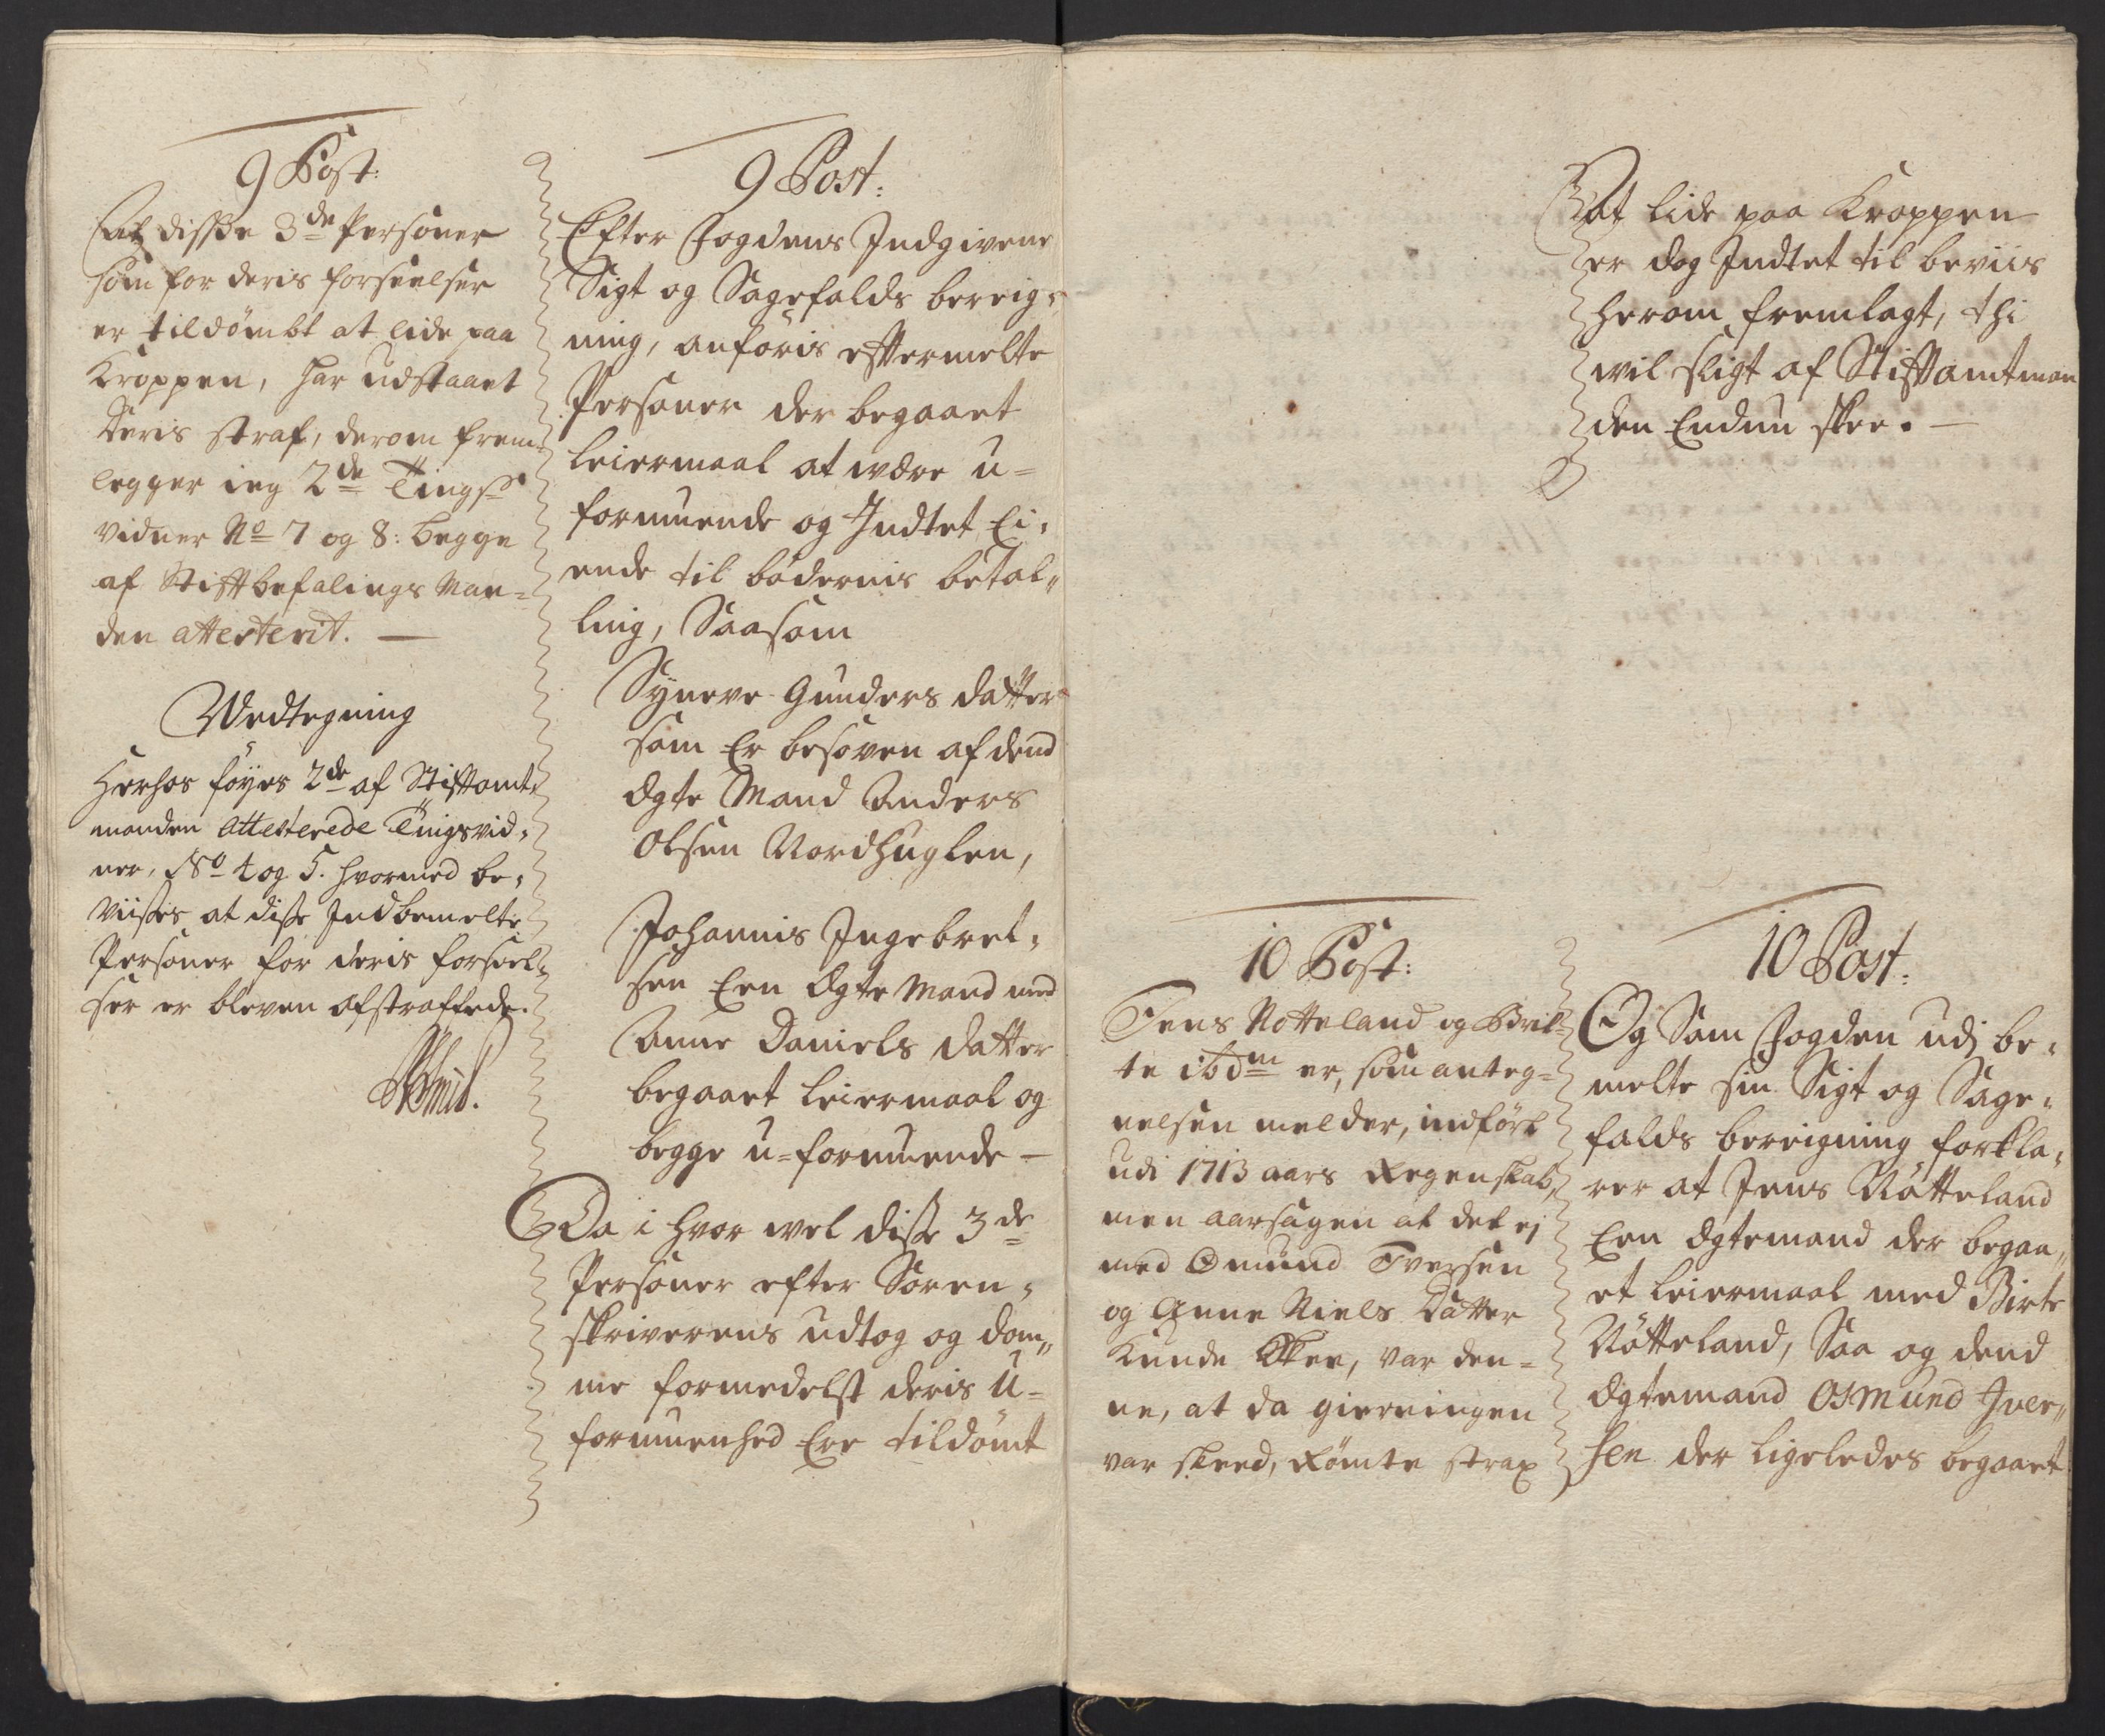 9 Post:
At disse 3de Personer
som for deris forseelser
er tildömbt at lide paa
Kroppen, har udstaaet
deris straf, derom frem-
legger ieg 2de Tings-
vidner No 7 og 8: begge
af Stiftbefalings Man-
den attesterit. —
Wedtegning
Herhos föyes 2de af Stiftamt-
manden Attesterede Tingsvid-
ner, No 4 og 5. hvormed be-
viises at disse Indbemelte
Personer for deris forseel-
ser er bleven afstraffede.
9 Post:
Efter Fogdens Indgivene
Sigt og Sagefalds bereig-
ning, anföris efftermelte
Personer der begaaet
leiermaal at være u-
formuende og Indtet Ei-
ende til bödernis betal-
ling, Saasom
Syneve Gunders datter
som Er besoven af dend
Ægte Mand Anders
Olsen Nordhuglen,
Johannis Ingebret-
sen Een Ægte Mand med
Anne Daniels datter
begaaet leiermaal og
begge u-formuende —
Da i hvor vel disse 3de
Personer efter Soren-
skriverens udtog og dom-
me formedelst deris u-
formuenhed Ere tildömt
at lide paa Kroppen
er dog Indtet til beviis
herom fremlagt, thi
wil sligt af Stiftamtman
den Endnu skee. —
10 Post:
Jens Notteland og Birit-
te ibdm er, som anteg-
nelsen melder, indfört
udi 1713 aars Regenskab,
men aarsagen at det ej
med Omund Iversen
og Anne Niels Datter
Kunde Skee, var den-
ne, at da gierningen
var skeed, Römte strax
10 Post:
Og Som Fogden udj be-
melte sin Sigt og Sage-
falds bereigning forkla-
rer at Jens Nötteland
Een Ægtemand der begaa-
et leiermaal med Birte
Nötteland, Saa og dend
Ægtemand Osmund Iver-
sen der ligeledes begaaet